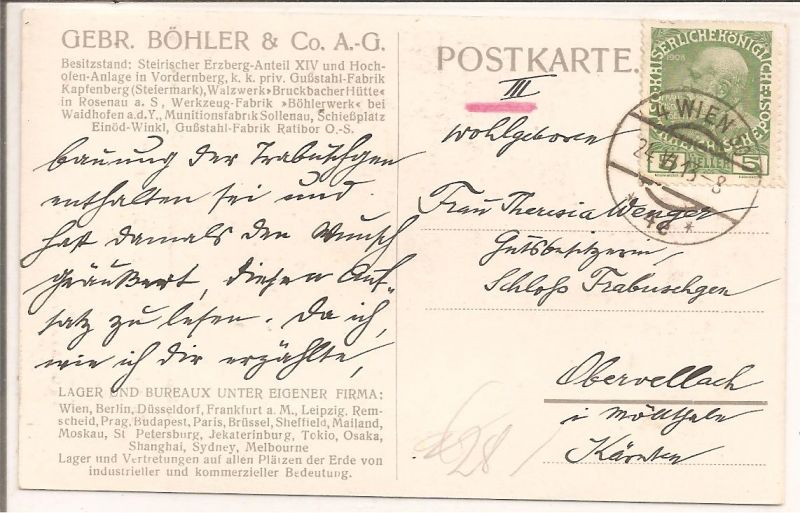 GEBR. BÖHLER & Co. A.-G.
Besitzstand: Steirischer Erzberg-Anteil XIV und Hoch-
ofen-Anlage in Vordernberg, k. k. priv. Gußstahl-Fabrik
Kapfenberg (Steiermark), Walzwerk »Bruckbacher Hütte«
in Rosenau a. S., Werkzeug-Fabrik »Böhlerwerk« bei
Waidhofen a.d.Y., Munitionsfabrik Sollenau, Schießplatz
Einöd-Winkl, Gußstahl-Fabrik Ratibor O.-S.
bauung der Trabuschgen
enthalten sei und
hast damals den Wunsch
geäußert, diesen Auf-
satz zu lesen. Da ich,
wie ich dir erzählte,
LAGER UND BUREAUX UNTER EIGENER FIRMA:
Wien, Berlin, Düsseldorf, Frankfurt a. M., Leipzig, Rem-
scheid, Prag, Budapest, Paris, Brüssel, Sheffield, Mailand,
Moskau, St Petersburg, Jekaterinburg, Tokio, Osaka,
Shanghai, Sydney, Melbourne
Lager und Vertretungen auf allen Plätzen der Erde von
industrieller und kommerzieller Bedeutung.
POSTKARTE.
III
Wohlgeboren
Frau Theresia Wenger
Gutsbesitzerin
Schloß Trabuschgen
Obervellach
i Mölltale
Kärnten
KAISERLICHE KÖNIGLICHE
1908
HELLER 5
WIEN
24. 13-8
* 4e *
28